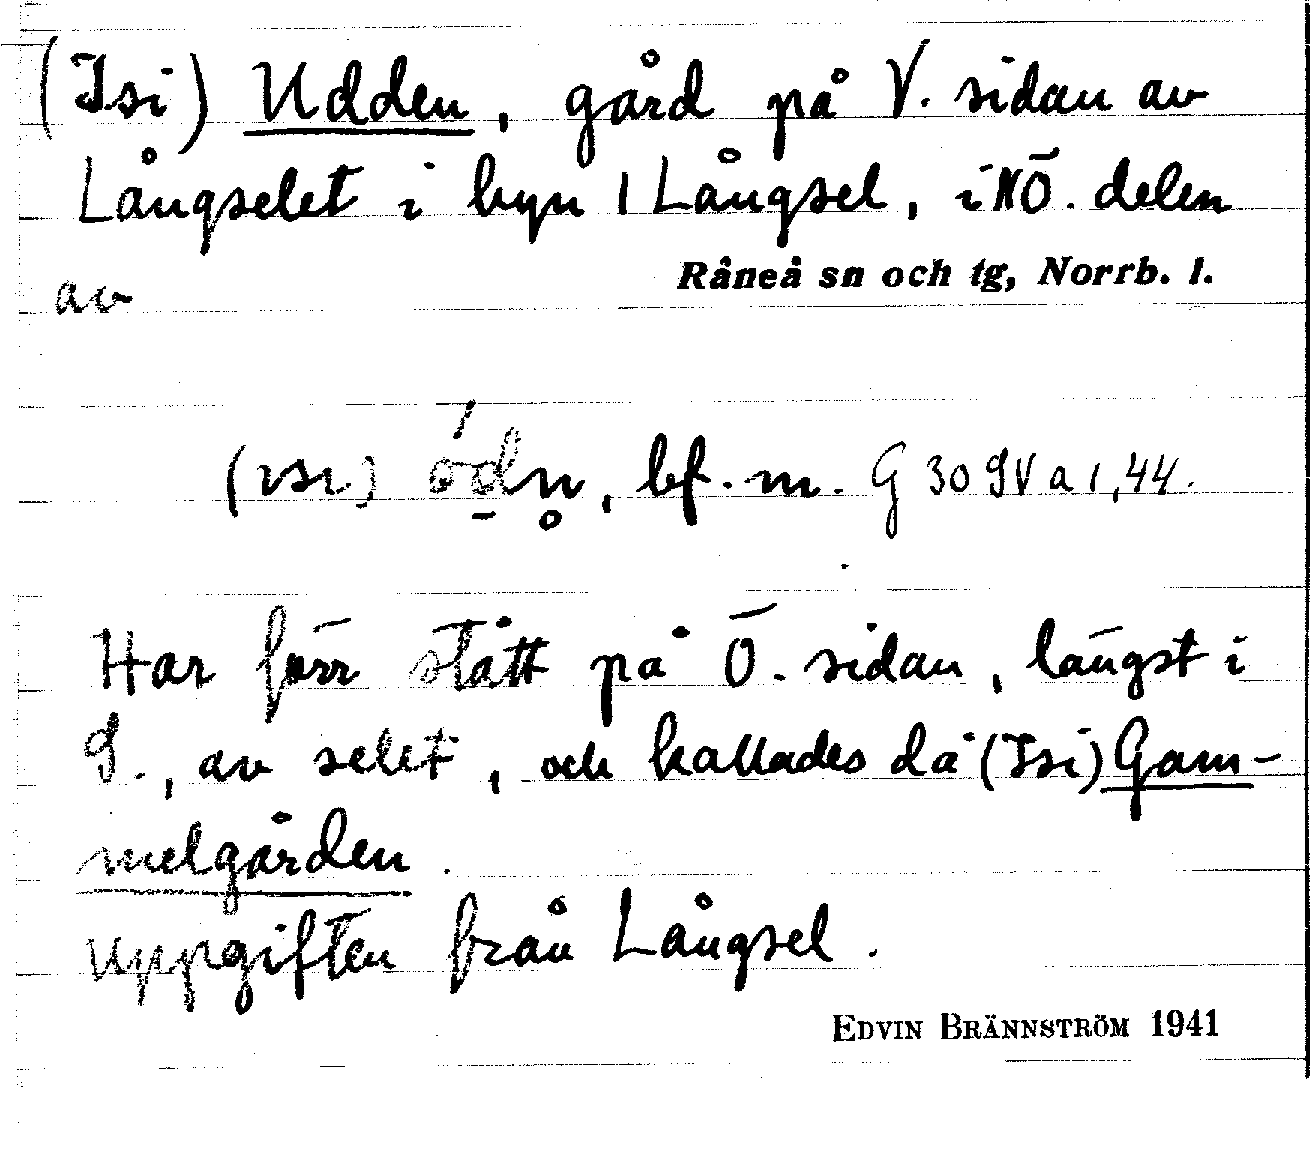 (Isi) Udden, gård på V. sidan av
Långselet i byn 1 Långsel, i NÖ. delen
av Råneå sn och tg, Norrb. l.
(ısı) ó̀d̠n̥, bf. m. G 30 9 V a 1, 44.
Har förr stått på Ö. sidan, längst i
S., av selet, och kallades då (Isi) Gam-
melgården.
Uppgiften från Långsel.
EDVIN BRÄNNSTRÖM 1941